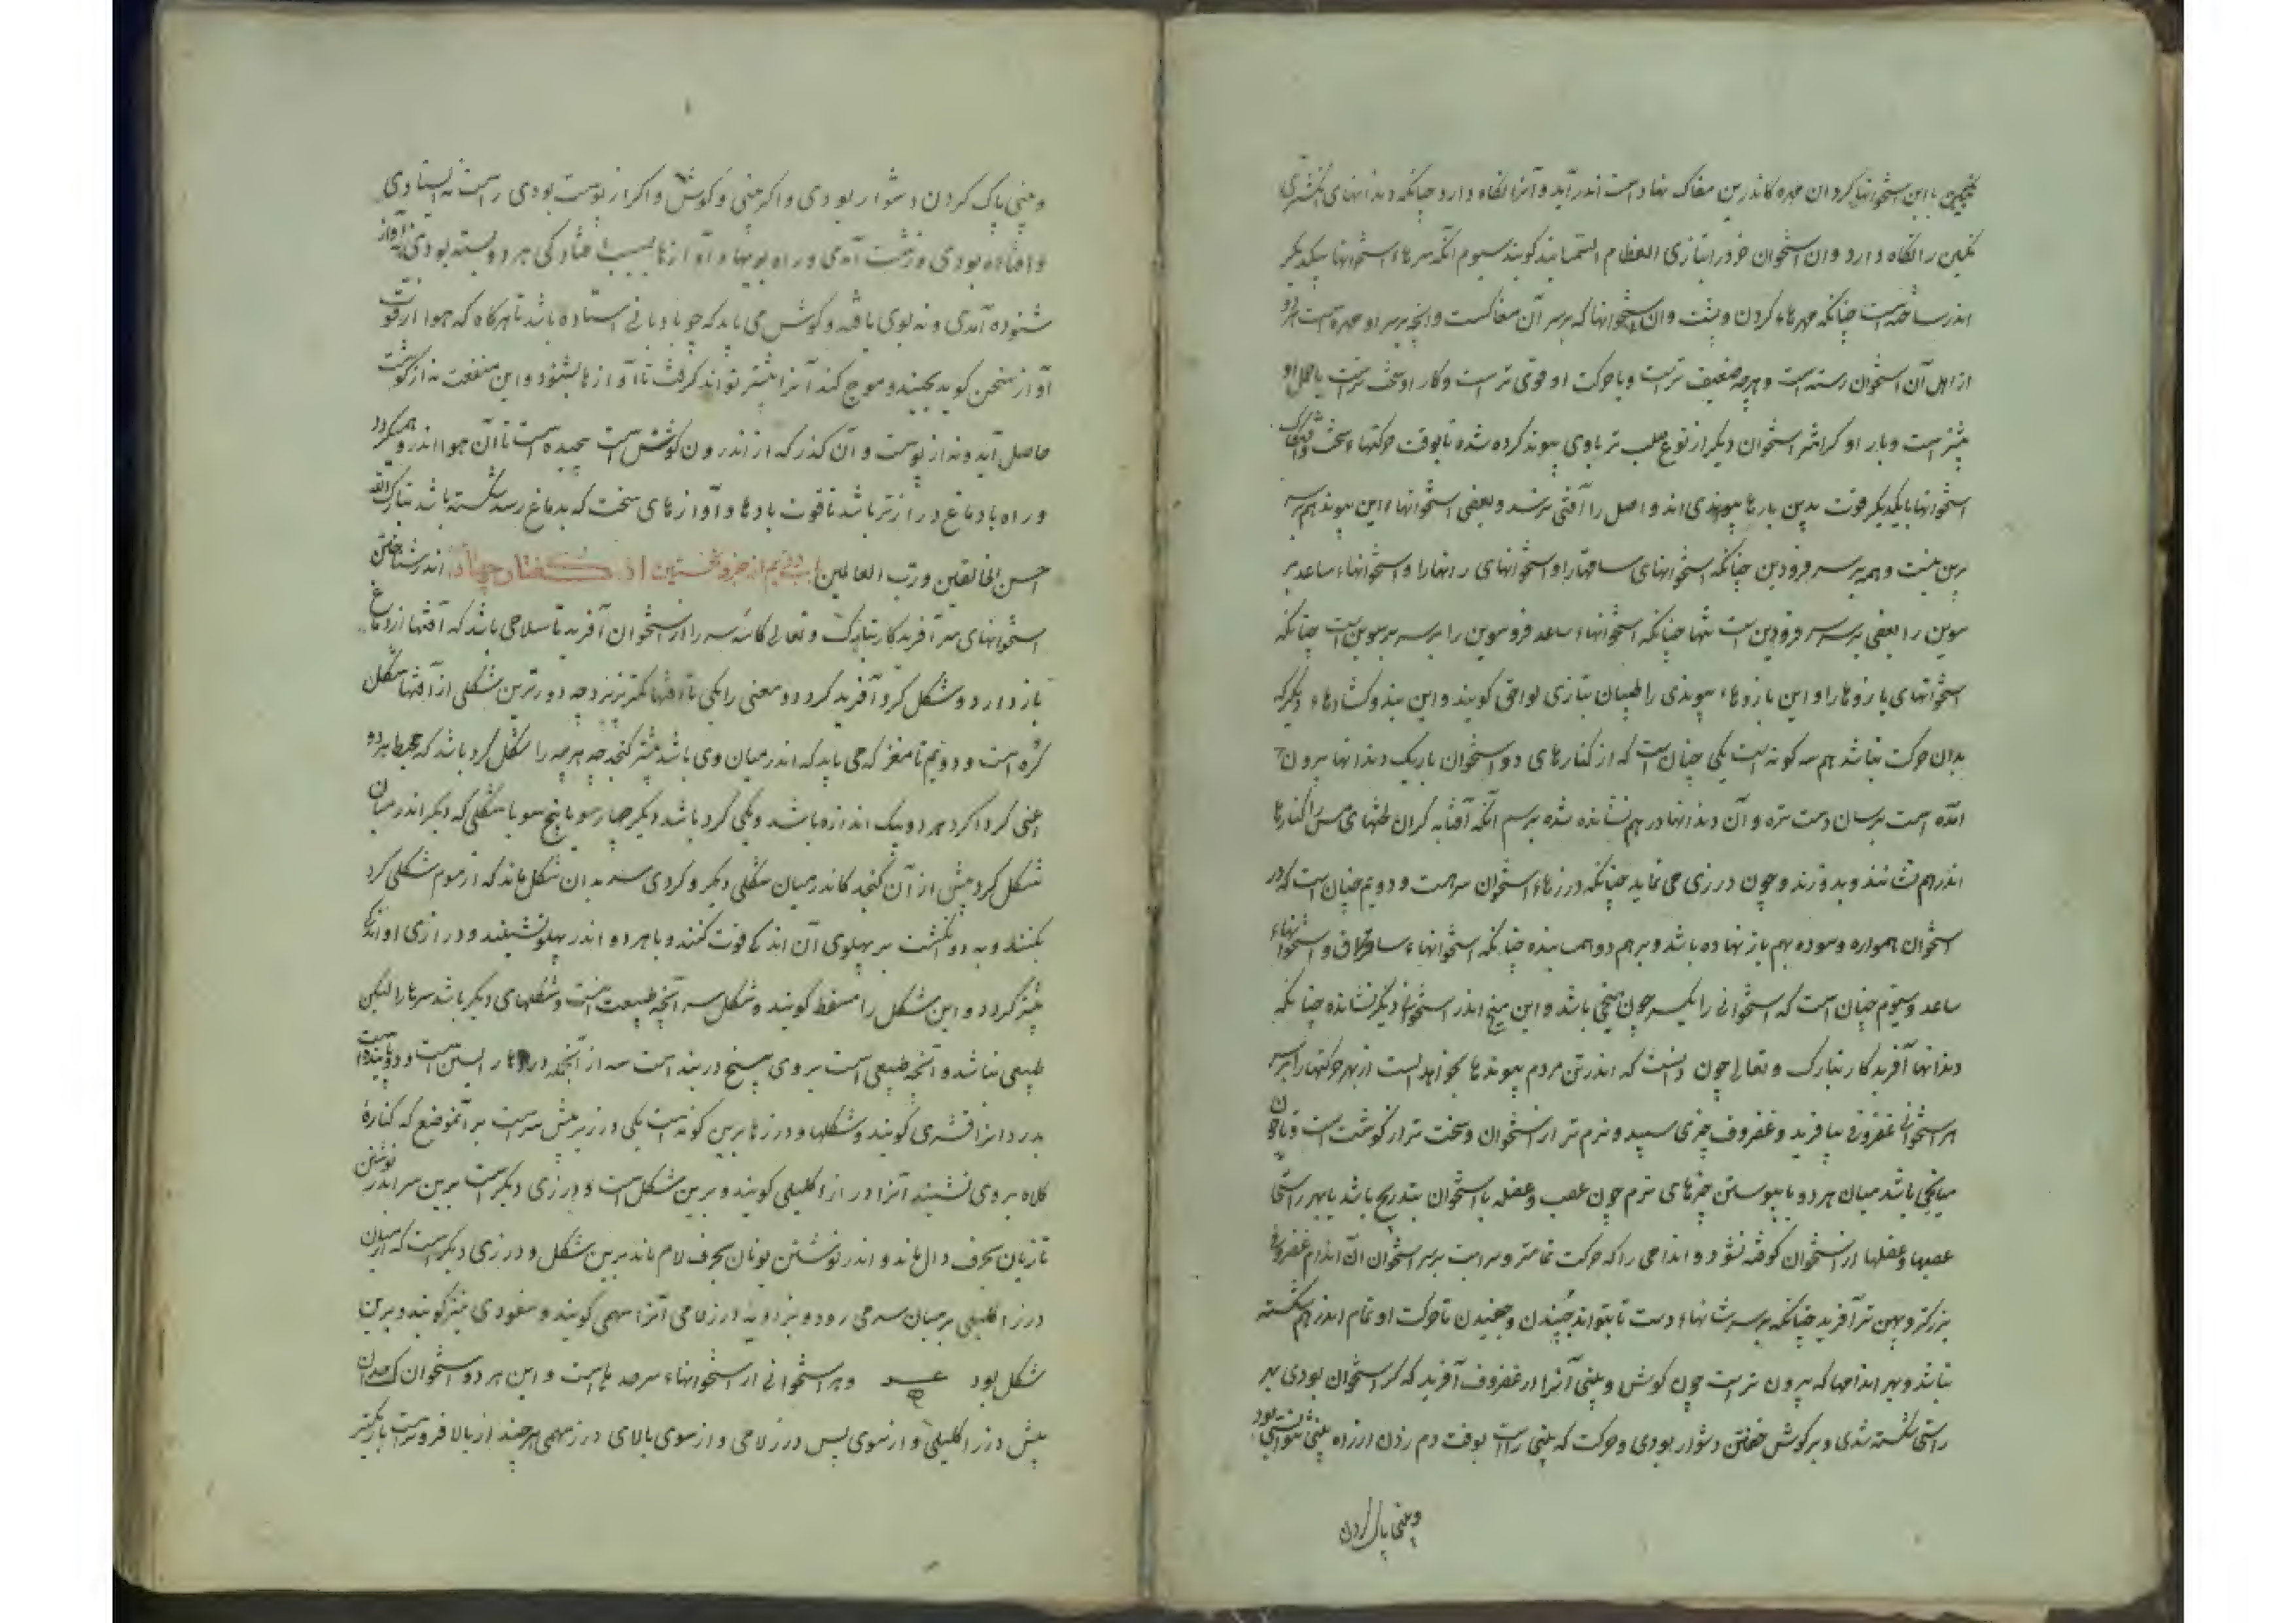 اندر ساخته است چنانکه مهرهاء گردن و پشت وان استخوانها که برسر آن مغاکست وانچه برسر او مهره است هردو
از اصل آن استخوان رسته است وهرچه ضعیف تر است وبا حرکت او قوی تر است وکار او سخت تر است یا حمل او
بیشتر است وبار او گرانتر استخوان دیگر از نوع صلب تر باوی پیوند کرده شده تا بوقت حرکتهاء سخت
استخوانها بایکدیگر قوت بدین بارها پیوندی اند و اصل را آفتی نرسد و بعضی استخوانها را این پیوند هم بسر
برین هست وهم بر سر فرودین چنانکه استخوانهای ساقها را و استخوانهای رانها را و استخوانهاء ساعد بر
سوین را بعضی بر سر فرودین است تنها چنانکه استخوانهاء ساعد فروسوین را بر سر برسوین است چنانکه
استخوانهای بازوها را و این بازوهاء پیوندی را طبیبان بتازی لواحق گویند و این بند و گشادهاء دیگر که
بدان حرکت نباشد هم سه گونه است یکی چنان است که از کنارهای دو استخوان باریک دندانها بیرون
آمده است برسان دست تره و آن دندانها در هم نشانده شده برسم آنکه آفتابه گران طشتهای مس را کنارها
اندر هم نشانند و بدوزند و چون درزی می نماید چنانکه درزهاء استخوان سر است و دویم چنان است که دو
استخوان همواره و سوده بهم باز نهاده باشد و بر هم دوهمبنده چنانکه استخوانهاء ساق و استخوانهاء
ساعد و سیوم چنان است که استخوانی را یکسر چون میخی باشد و این میخ اندر استخوانی دیگر نشانده چنانکه
دندانها آفریدکار تبارک و تعالی چون دانست که اندر تن مردم پیوندها بخواهد بست از بهر حرکتها را بر سر
هر استخوانی غضروفی بیافرید و غضروف چیزی سپید و نرم تر از استخوان و سخت تر از گوشت است
میانجی باشد میان هر دو تا پیوستن چیزهای نرم چون عصب و عضله با استخوان بتدریج باشد تا بهر راستی
عصبها و عضلها از استخوان کوفته نشود و اندامی را که حرکت تمامتر و است برسر استخوان آن اندام غضروفی
بزرگتر و پهن تر آفرید چنانکه بر سر شانهاء دست تا بتواند جنبیدن و تا حرکت او تمام اندر هم شکسته
نباشد و بهر اندامها که بیرون تر است چون گوش و بینی آنرا از غضروف آفرید که گر استخوان بودی بهر
راستی شکسته شدی و بر گوش خفتن دشوار بودی و حرکت که بینی راست بوقت دم زدن
وبینی پاک کردن
وبینی پاک کردن دشوار بودی و اکر بینی و کوش و اکر از پوست بودی راست نه ایستادی
و افتاده بودی و زشت آمدی و راه بویها و آوازها بسبب افتادگی هر دو بسته بودی نه آواز
شنوده آمدی و نه بوی یافته و کوش می باید که چو بادبانی استاده باشد تا هرگاه که هوا از قوت
آواز سخن گوید بجنبد و موج کند آنرا بیشتر تواند گرفت تا آوازها بشنود و این منفعت نه از گوشت
حاصل آید و نه از پوست و آن گذر که از اندرون گوش است پیچیده است تا آن هوا اندر وی همیگردد
و راه با دماغ درازتر باشد تا قوت بادها و آوازهای سخت که بدماغ رسد شکسته باشد تبارک الله
احسن الخالقین و رب العالمین باب دویم از جزو نخستین از گفتار چهارم اندر شناختن
استخوانهای سر آفریدکار تبارک و تعالی کاسه سر را از استخوان آفرید تا سلاحی باشد که آفتها از دماغ
باز دارد و شکل گرد آفرید گرد دو معنی را یکی تا آفتها کمتر پذیرد چه دورترین شکلی از آفتها شکل
گرد است و دویم تا مغز که می باید که اندر میان وی باشد بیشتر گنجد چه هرچه را شکل گرد باشد که محیط هر دو
اعنی گرداگرد هر دو بیک اندازه باشد و یکی گرد باشد دیگر چهارسو یا پنج سو یا شکلی که دیگر اندر میان
شکل گرد بیش از آن گنجد کاندر میان شکلی دیگر و گردی سر بدان شکل ماند که از موم شکلی گرد
بکنند و به دو انگشت بر پهلوی آن اندکی قوت کنند و تا هر دو اندر پهلو نشینند و درازی او اندکی
بیشتر گردد و این شکل را مسفط گویند و شکل سر آنچه طبیعت است و شکلهای دیگر باشد سرها را لیکن
طبیعی نباشد و آنچه طبیعی است بر وی پنج درز بند است سه از آنجمله درزها راستین است
درز را قشری گویند و شکلها و درزها برین گونه است یکی درز بر پیش سر است بر آنموضع که کناره
کلاه بر وی نشیند آنرا درز اکلیلی گویند و برین شکل است و درزی دیگر است برین سر اندر نوشتن
تازیان بحرف دال ماند و اندر نوشتن یونان بحرف لام ماند برین شکل و درزی دیگر است که از میان
درز اکلیلی بر میان سر می رود و بزاویه درز لامی آنرا سهمی گویند و سفودی نیز گویند و برین
شکل بود و هر استخوانی از استخوانهاء سر و این هر دو استخوان
پیش درز اکلیلی و از سوی پس درز لامی و از سوی بالای درز سهمی هر چند از بالا فروتر است باریکتر